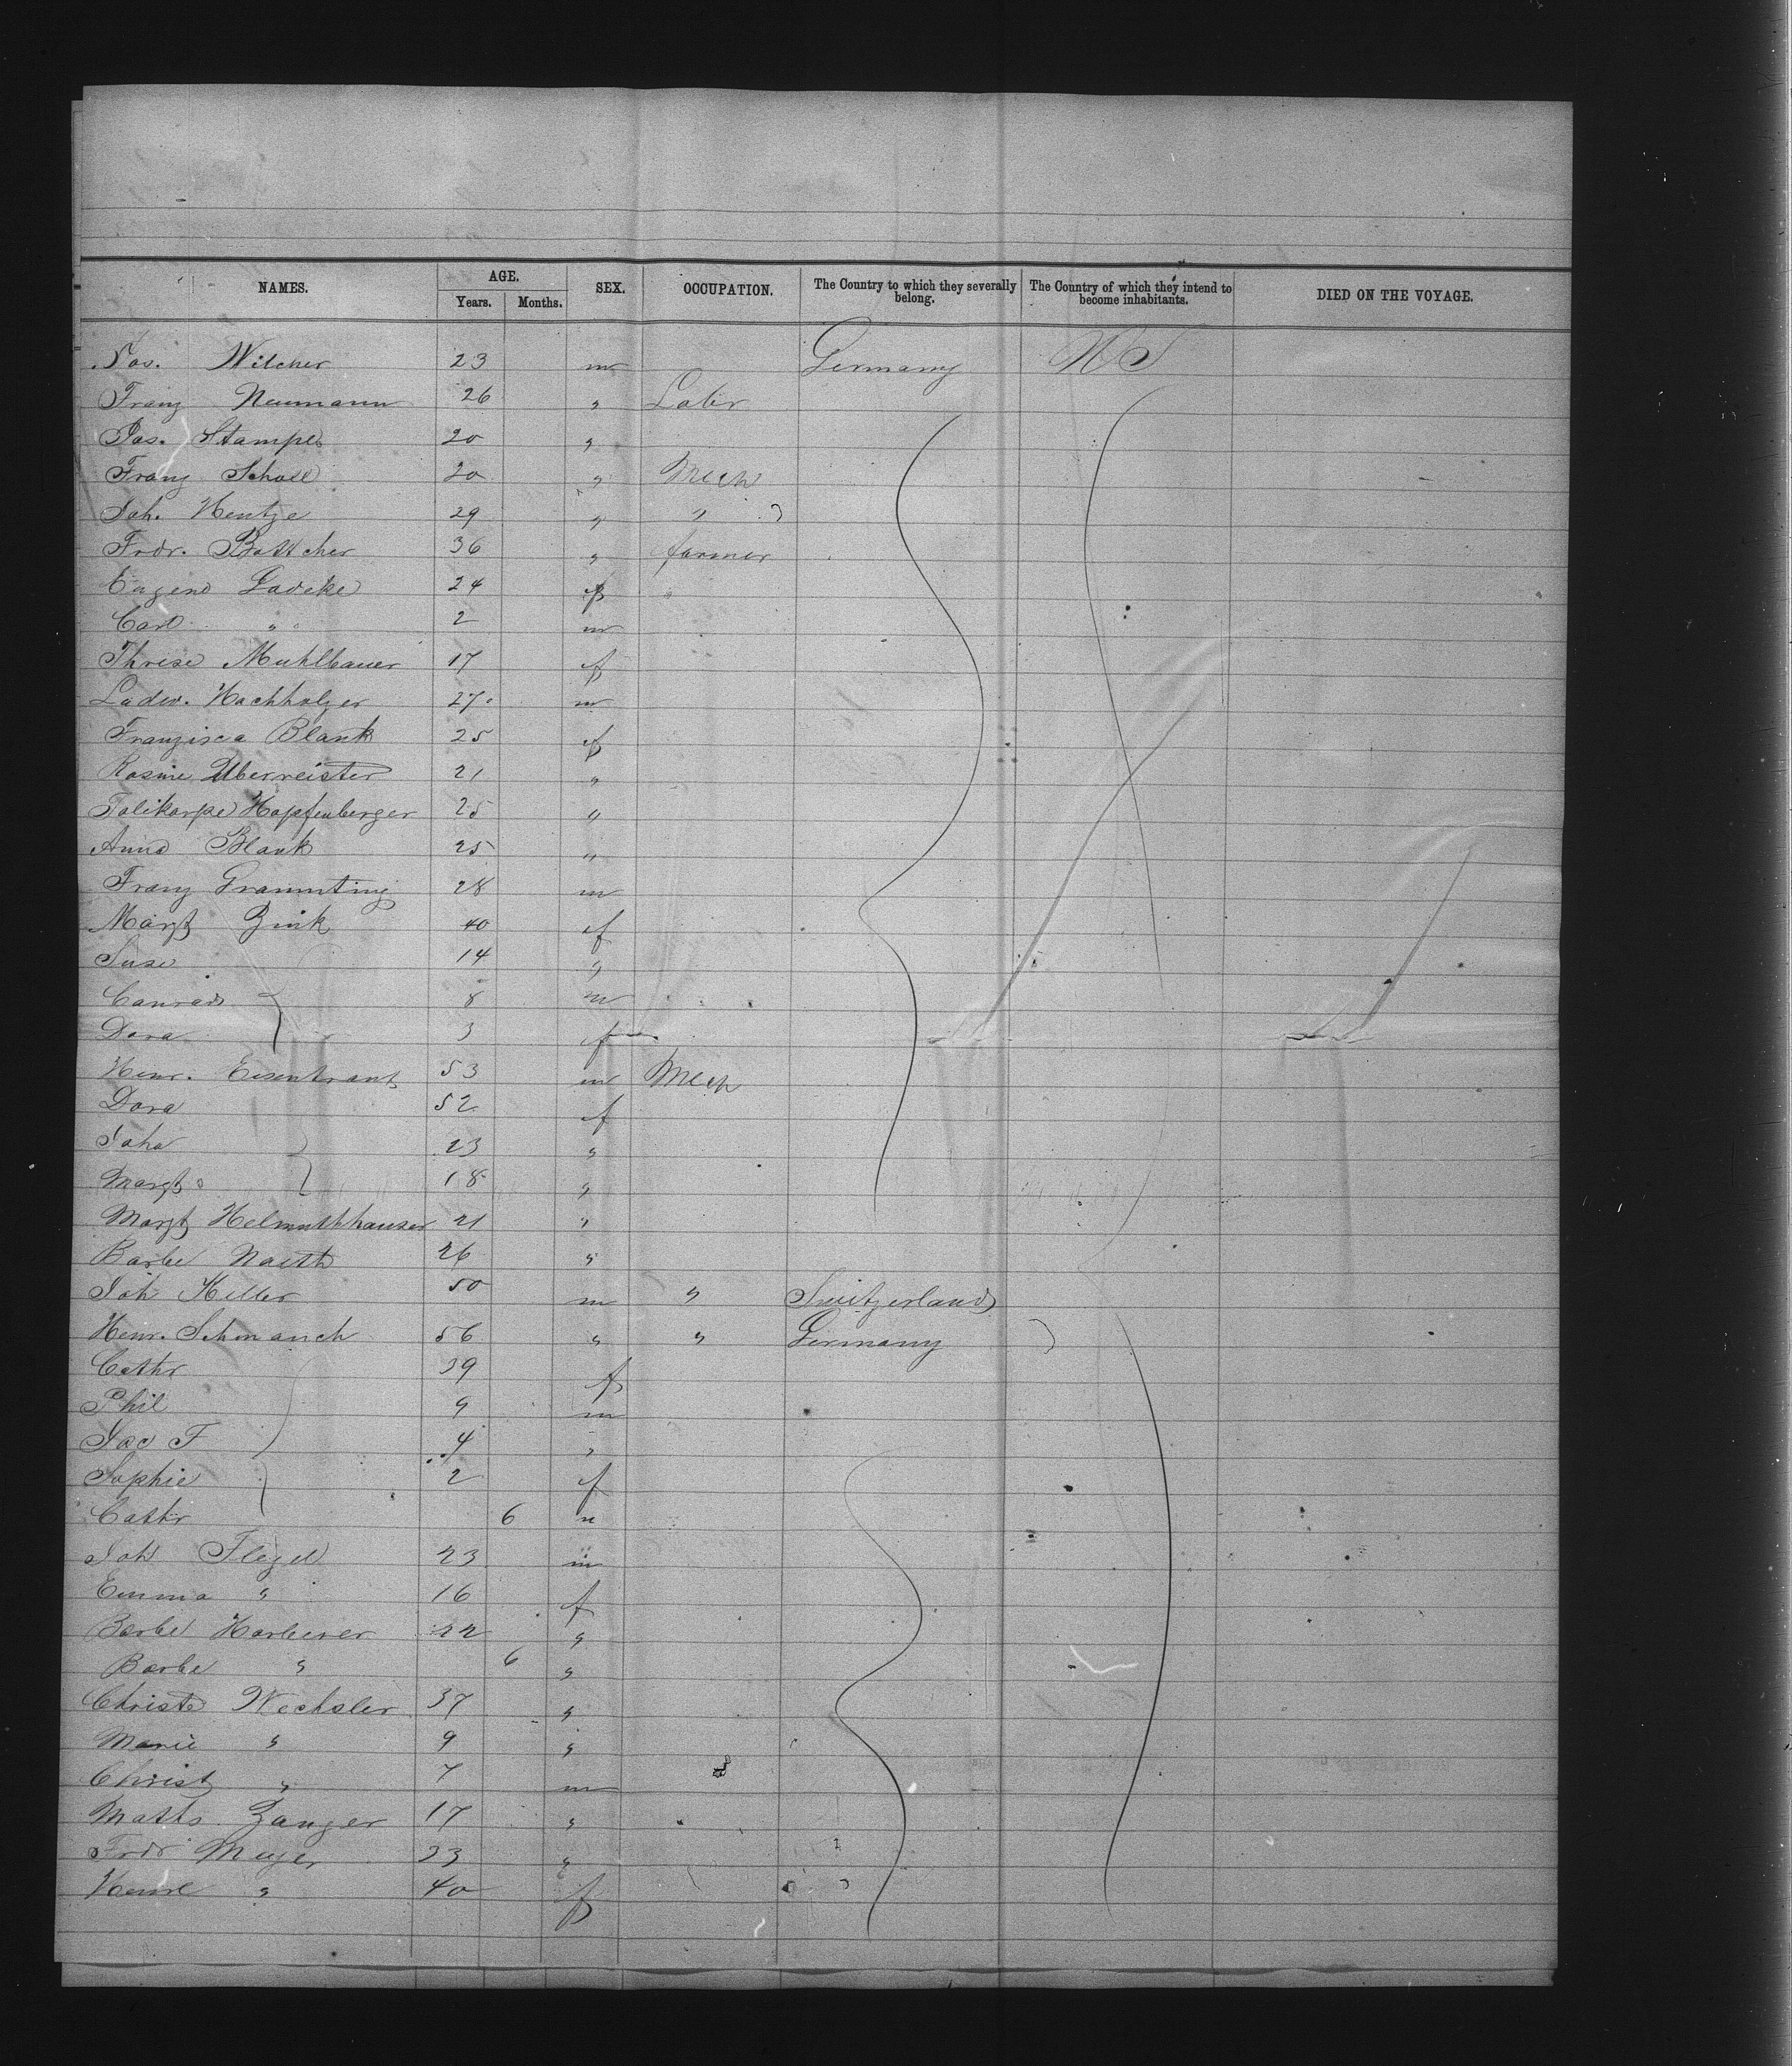 NAMES. AGE. Years. Months. SEX. OCCUPATION. The Country to which they severally belong. The Country of which they intend to become inhabitants. DIED ON THE VOYAGE.
Jos. Wilcher 23 m Germany US
Franz Neumann 26 " Labr
Jos. Stampe 20 "
Franz Scholl 20 " Mech
Joh. Hentze 29 " "
Frdr. Bottcher 36 " farmer
Eugene Ladeke 24 f "
Carl " 2 m
Threse Muhlbauer 17 f
Ludw. Hochholzer 27 m
Franzisca Blank 25 f
Rosine Uberreister 21 "
Polikarpe Hopfenberger 25 "
Anna Blank 25 "
Franz Grammting 28 m
Margt Zink 40 f
Suse 14 "
Conrad 8 m
Dora 3 f
Henr. Eisentraut 53 m Mech
Dora 52 f
Joha 23 "
Margt 18 "
Margt Helmuthhauser 21 "
Barbe Naeth 26 "
Joh Keller 50 m " Switzerland
Henr. Schmauch 56 " " Germany
Cathr 39 f
Phil 9 m
Jac F 4 "
Sophie 2 f
Cathr 6 "
Joh Flegel 23 m
Emma " 16 f
Barbe Harberer 22 "
Barbe " 6 "
Christe Wechsler 37 "
Marie " 9 "
Christ " 7 m
Maths Zanger 17 "
Frdr Meyer 23 "
Henre " 40 f